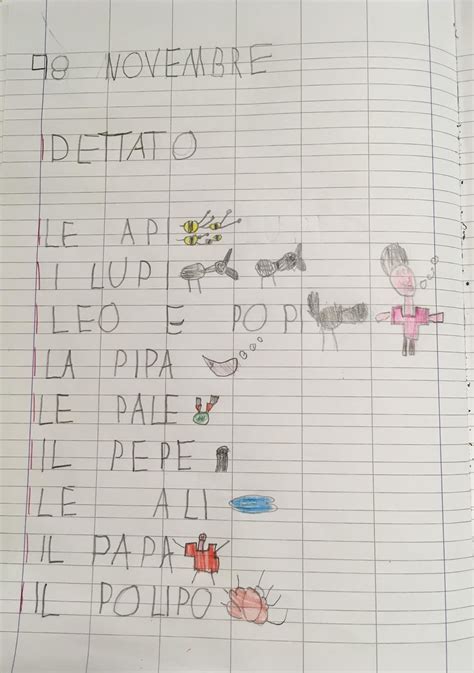 18 NOVEMBRE
DETTATO
LE API
I LUPI
LEO E POPI
LA PIPA
LE PALE
IL PEPE
LE ALI
IL PAPA
IL POLIPO